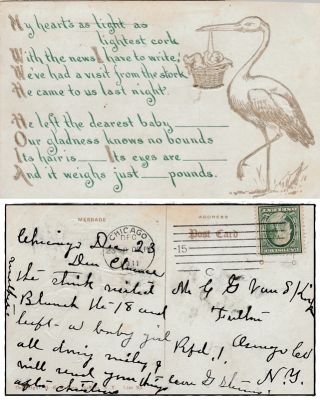 My heart's as light as
lightest cork
With the news I have to write;
We've had a visit from the stork
He came to us last night.
He left the dearest baby
Our gladness knows no bounds
Its hair is Its eyes are
And it weighs just pounds.
MESSAGE
ADDRESS
Post Card
CHICAGO
DEC
1911
-15
C
Chicago Dec 23
Dear
the stork visited
Blanch the 18 and
left a baby girl
all doing nicely
will send your things
after
Mr G G Van
Fulton
Rfd 1 Oswego Co
N.Y.